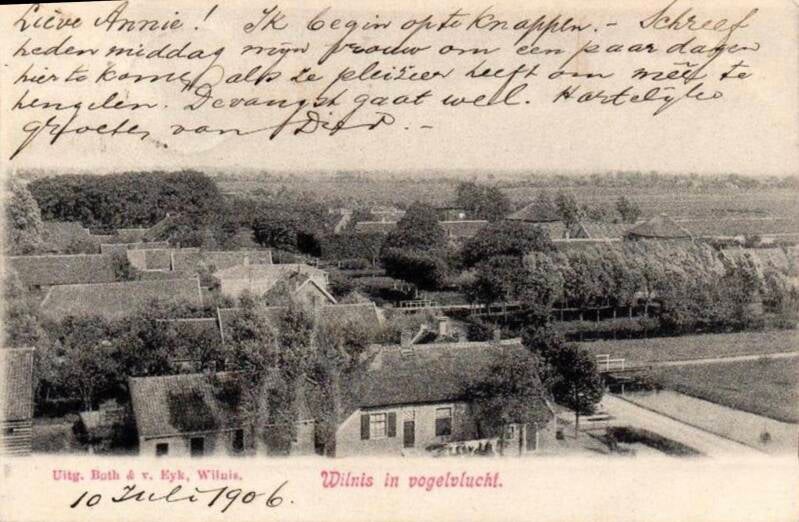 Lieve Annie! Ik begin op te knappen. - Schreef
heden middag mijn vrouw om een paar dagen
hier te komen, als ze pleizier heeft om meê te
hengelen. De vangst gaat wel. Hartelijke
groeten van Dirk. -
Uitg. Both & v. Eyk, Wilnis.
Wilnis in vogelvlucht.
10 Juli 1906.